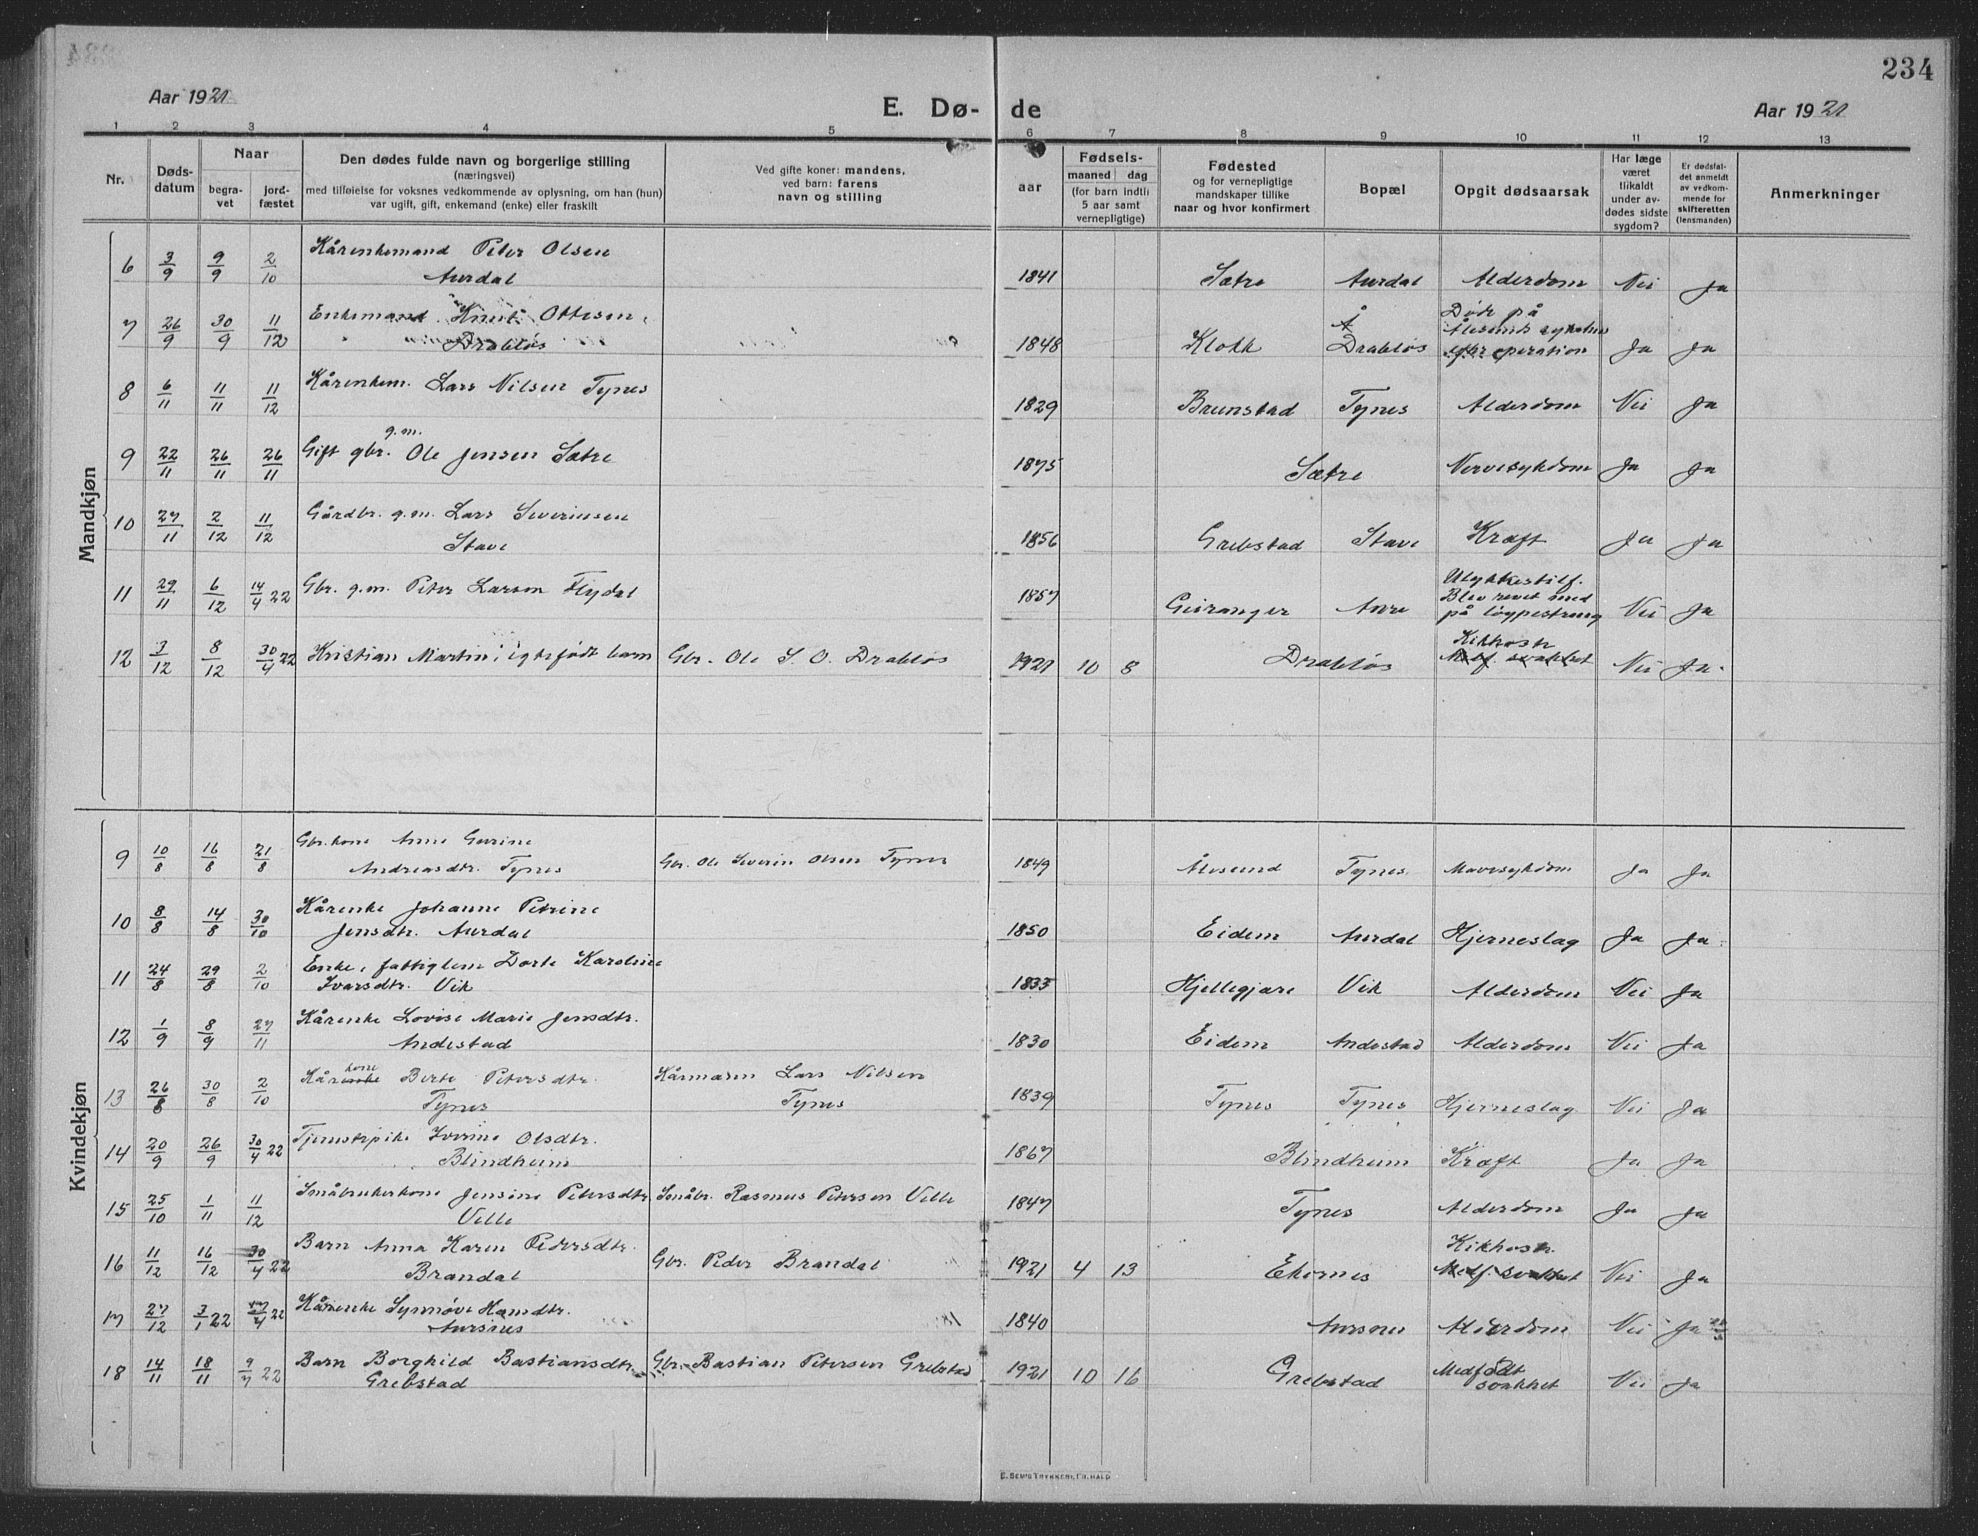 234
Aar 1921
E. Dø- de
Aar 1921
1 2 3 4 5 6 7 8 9 10 11 12 13
Nr.
Døds-
datum
Naar
begra-
vet
jord-
fæstet
Den dødes fulde navn og borgerlige stilling
(næringsvei)
med tilføielse for voksnes vedkommende av oplysning, om han (hun)
var ugift, gift, enkemand (enke) eller fraskilt
Ved gifte koner: mandens,
ved barn: farens
navn og stilling
Fødsels-
aar
maaned dag
(for barn indtil
5 aar samt
vernepligtige)
Fødested
og for vernepligtige
mandskaper tillike
naar og hvor konfirmert
Bopæl
Opgit dødsaarsak
Har læge
været
tilkaldt
under av-
dødes sidste
sygdom?
Er dødsfal-
det anmeldt
av vedkom-
mende for
skifteretten
(lensmanden)
Anmerkninger
Mandkjøn
6 3/9 9/9 2/10 Kårenkemand Peter Olsen
Aurdal 1841 Sætre Aurdal Alderdom Nei Ja
7 26/9 30/9 11/12 Enkemand Knut Ottesen
Drabløs 1848 Klokk Å Drabløs Døde på
Ålesunds sykehus
efter operation Ja Ja
8 6/11 11/11 11/12 Kårenkem. Lars Nilsen Tynes 1829 Brunstad Tynes Alderdom Nei Ja
9 22/11 26/11 26/11 Gift gbr. g.m. Ole Jensen Sætre 1875 Sætre Nervesykdom Ja Ja
10 27/11 2/12 11/12 Gårdbr. g.m. Lars Severinsen
Stave 1856 Grebstad Stave Kræft Ja Ja
11 29/11 6/12 14/4 22 Gbr. g.m. Peter Larsen Flydal 1857 Geiranger Aure Ulykkestilf.
Blev revet med
på løypestreng Nei Ja
12 3/12 8/12 30/4 22 Kristian Martin, egtefødt barn Gbr. Ole S. O. Drabløs 1921 10 8 Drabløs Kikhoste
Medf. svakhet Nei Ja
Kvindekjøn
9 10/8 16/8 21/8 Gbr.kone Anne Gurine
Andreasdtr. Tynes Gbr. Ole Severin Olsen Tynes 1849 Ålesund Tynes Mavesykdom Ja Ja
10 8/8 14/8 30/10 Kårenke Johanne Petrine
Jensdtr. Aurdal 1850 Eidem Aurdal Hjerneslag Ja Ja
11 24/8 29/8 2/10 Enke, fattiglem Dorte Karoline
Ivarsdtr. Vik 1835 Hjellegjære Vik Alderdom Nei Ja
12 1/9 8/9 27/11 Kårenke Lovise Marie Jensdtr.
Andestad 1830 Eidem Andestad Alderdom Nei Ja
13 26/8 30/8 2/10 Kårenke kone Berte Petersdtr.
Tynes Kårmann Lars Nilsen
Tynes 1839 Tynes Tynes Hjerneslag Nei Ja
14 20/9 26/9 30/4 22 Tjenestepike Iverine Olsdtr.
Blindheim 1867 Blindheim Kræft Ja Ja
15 25/10 1/11 11/12 Småbrukerkone Jensine Petersdtr.
Velle Småbr. Rasmus Petersen Velle 1847 Tynes Alderdom Ja Ja
16 11/12 16/12 30/4 22 Barn Anna Karen Pedersdtr.
Brandal Gbr. Peder Brandal 1921 4 13 Ekornes Kikhoste
Medf. svakhet Nei Ja
17 27/12 3/1 22 17/4 22 Kårenke Synnøve Hansdtr.
Aursnes 1840 Aursnes Alderdom Nei Ja
18 14/11 18/11 9/7 22 Barn Borghild Bastiansdtr.
Grebstad Gbr. Bastian Petersen Grebstad 1921 10 16 Grebstad Medfødt
svakhet Nei Ja
E. SEM'S TRYKKERI, FR.HALD